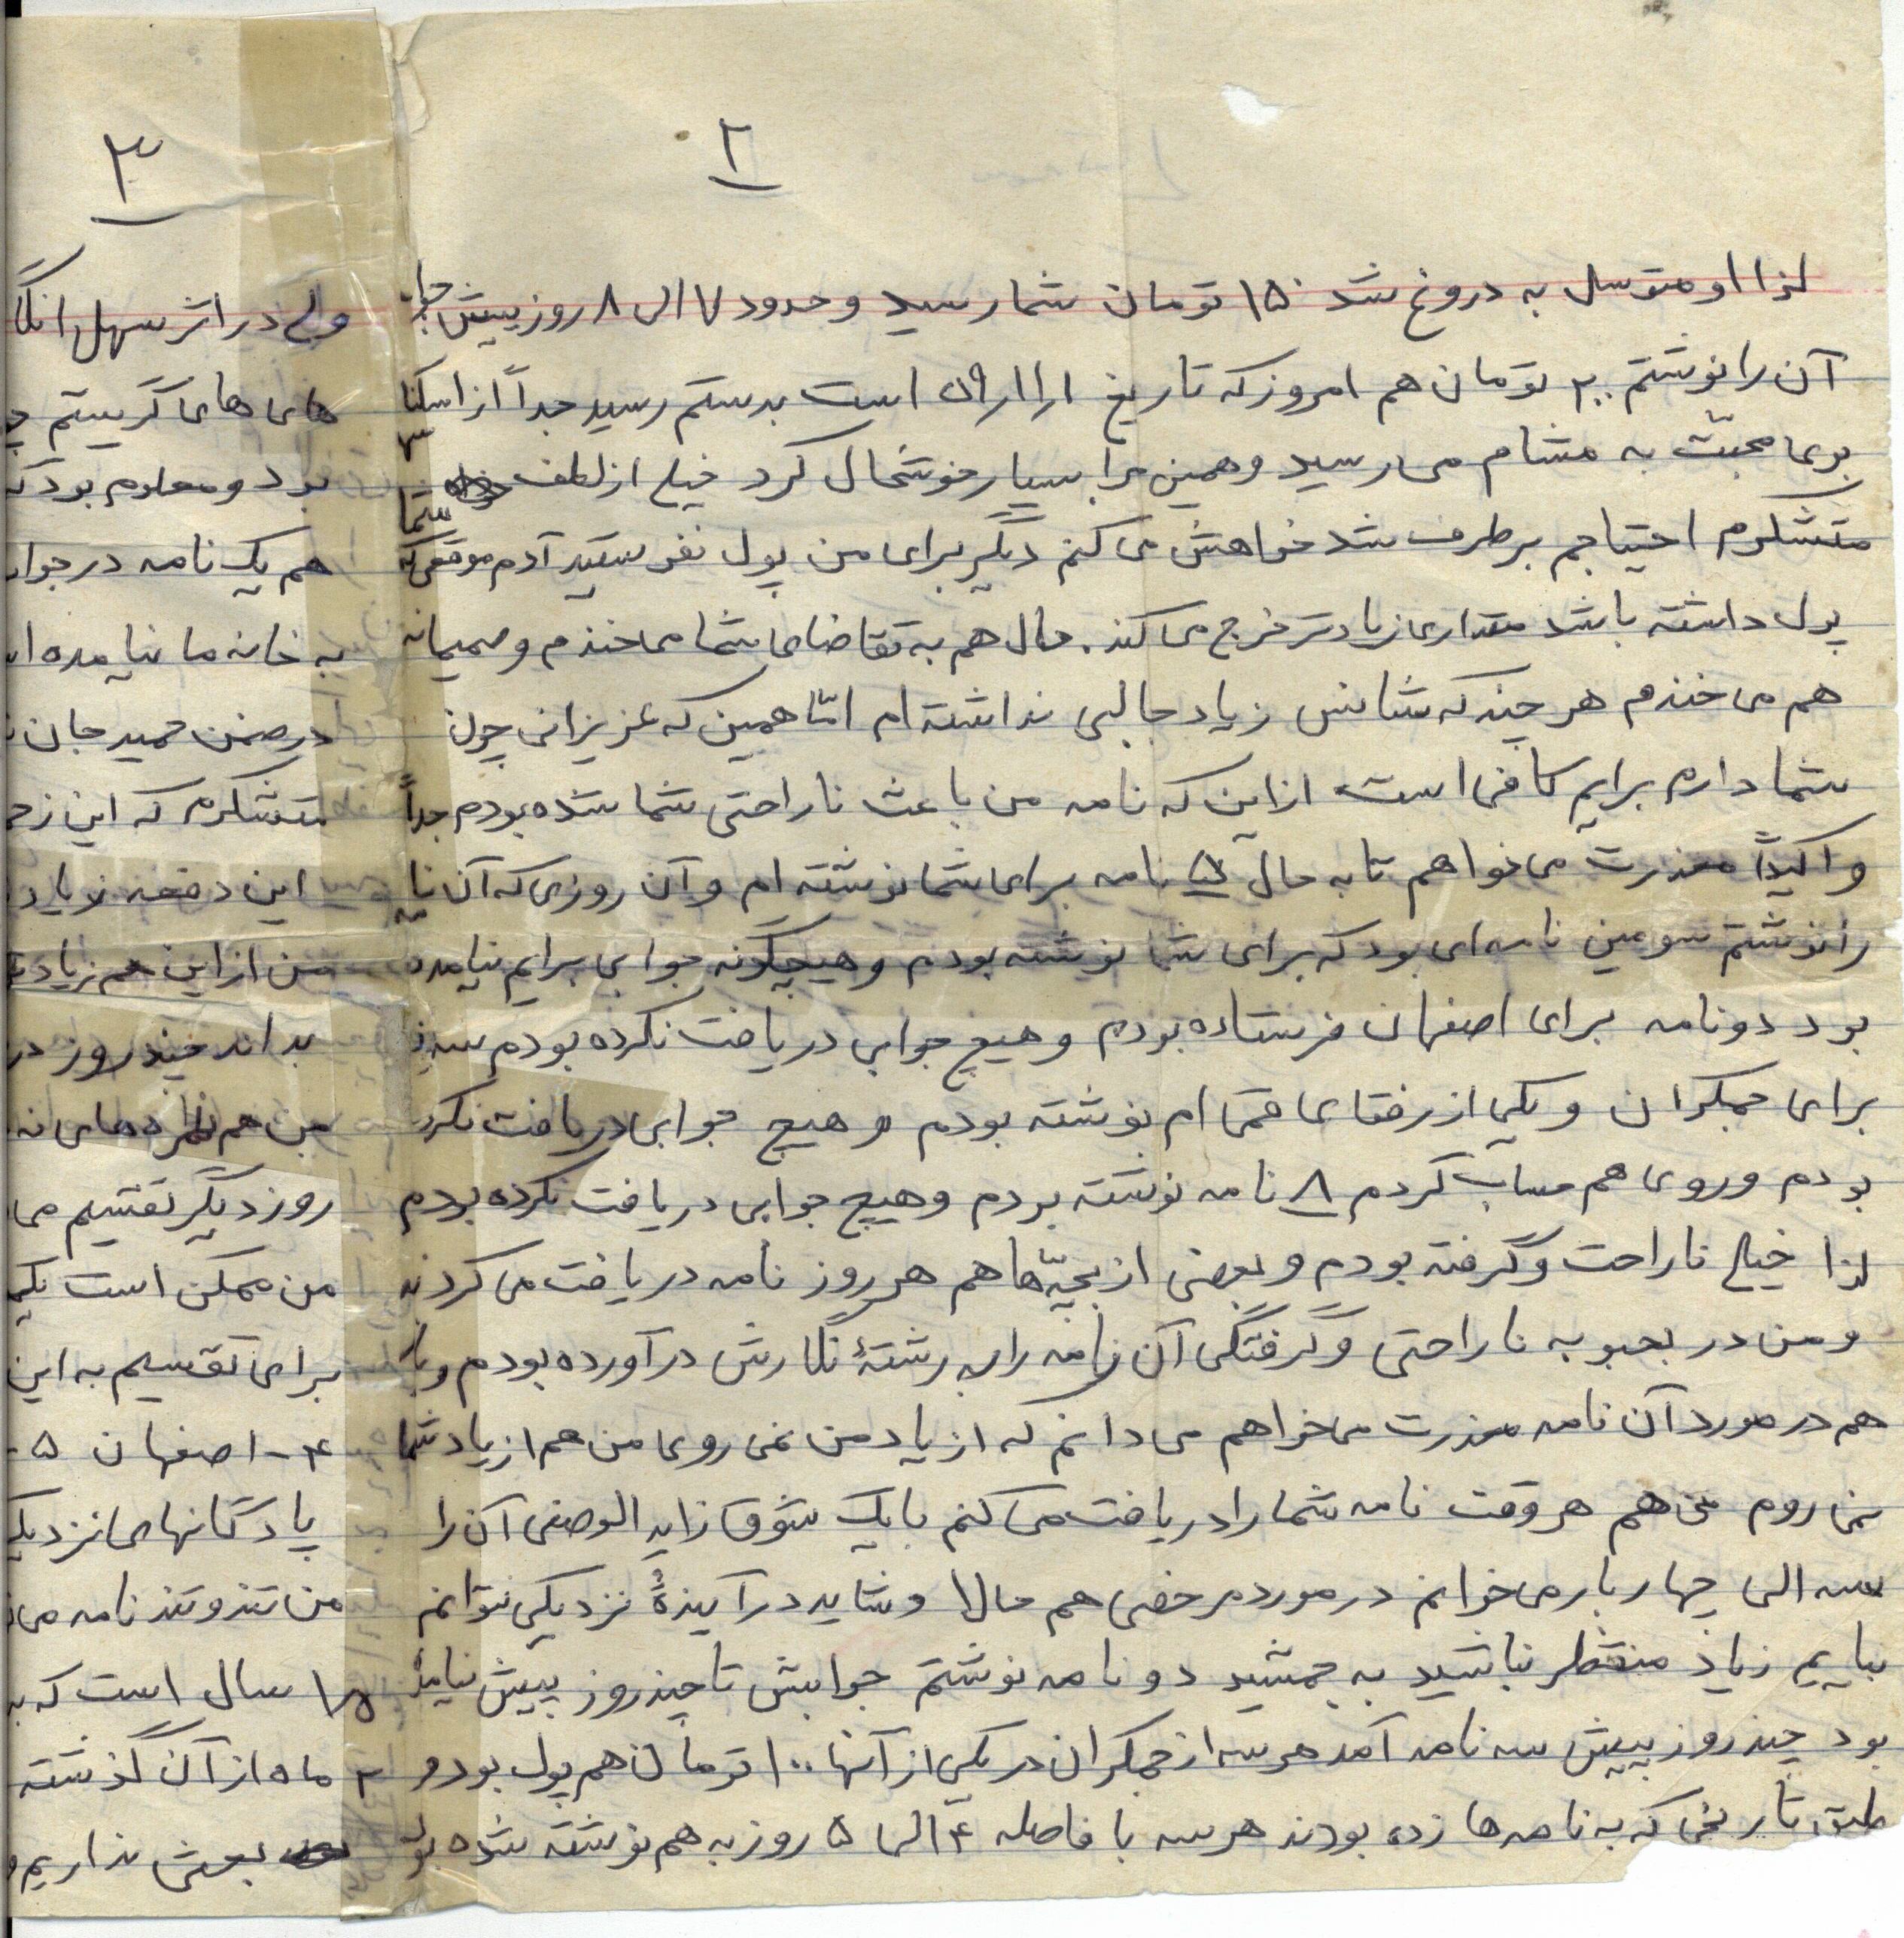 ۲
لذا او متوسل به دروغ شد ۱۵۰ تومان شما رسید و حدود ۷ الی ۸ روز پیش جواب
آن را نوشتم ۲۰۰ تومان هم امروز که تاریخ ۱ر۱۱ر۵۹ است بدستم رسید جداً از اسکناسها
بوی محبّت به مشام می رسید و همین مرا بسیار خوشحال کرد خیلی از لطف شما
متشکرم احتیاجم برطرف شد خواهش می کنم دیگر برای من پول نفرستید آدم موقعی که
پول داشته باشد مقداری زیادتر خرج می کند. حال هم به تقاضای شما می خندم و صمیمانه
هم می خندم هر چند که شانس زیاد جالبی نداشته ام امّا همین که عزیزانی چون
شما دارم برایم کافی است از این که نامه من باعث ناراحتی شما شده بودم جداً
و اکیداً معذرت می خواهم تا به حال ۵ نامه برای شما نوشته ام و آن روزی که آن نامه
را نوشتم سومین نامه ای بود که برای شما نوشته بودم و هیچگونه جوابی برایم نیامده
بود دو نامه برای اصفهان فرستاده بودم و هیچ جوابی دریافت نکرده بودم سه
برای جمکران و یکی از رفقای قمی ام نوشته بودم و هیچ جوابی دریافت نکرده
بودم و روی هم حساب کردم ۸ نامه نوشته بودم و هیچ جوابی دریافت نکرده بودم
لذا خیلی ناراحت و گرفته بودم و بعضی از بچّه ها هم هر روز نامه دریافت می کردند
و من در بحبوبه ناراحتی و گرفتگی آن نامه را به رشتهٔ نگارش در آورده بودم و باز
هم در مورد آن نامه معذرت می خواهم می دانم که از یاد من نمی روی من هم از یاد شما
نمی روم من هم هر وقت نامه شما را دریافت می کنم با یک شوق زاید الوصفی آن را
سه الی چهار بار می خوانم در مورد مرخصی هم حالا و شاید در آیندهٔ نزدیکی نتوانم
بیایم زیاد منتظر نباشید به جمشید دو نامه نوشتم جوابش تا چند روز پیش نیامده
بود چند روز پیش سه نامه آمد هر سه از جمکران در یکی از آنها ۱۰۰ تومان هم پول بود و
طبق تاریخی که به نامه ها زده بودند هر سه با فاصله ۴ الی ۵ روز به هم نوشته شده بود
۳
ولی در اثر سهل انگا
های های گریستم
بود و معلوم بود که
هم یک نامه در جواب
به خانه ما نیامده ا
در ضمن حمید جان
متشکرم که این زحم
این دفعه زیاد
من از این هم زیادتر
بداند چند روز در
من هم
روز دیگر تقسیم می
من ممکن است یک
برای تقسیم به این
۴- اصفهان ۵-
پادگانهای نزدیک
من تند و تند نامه می
۱۵ سال است که
۲ ماه از آن گذشته
بعثی نداریم